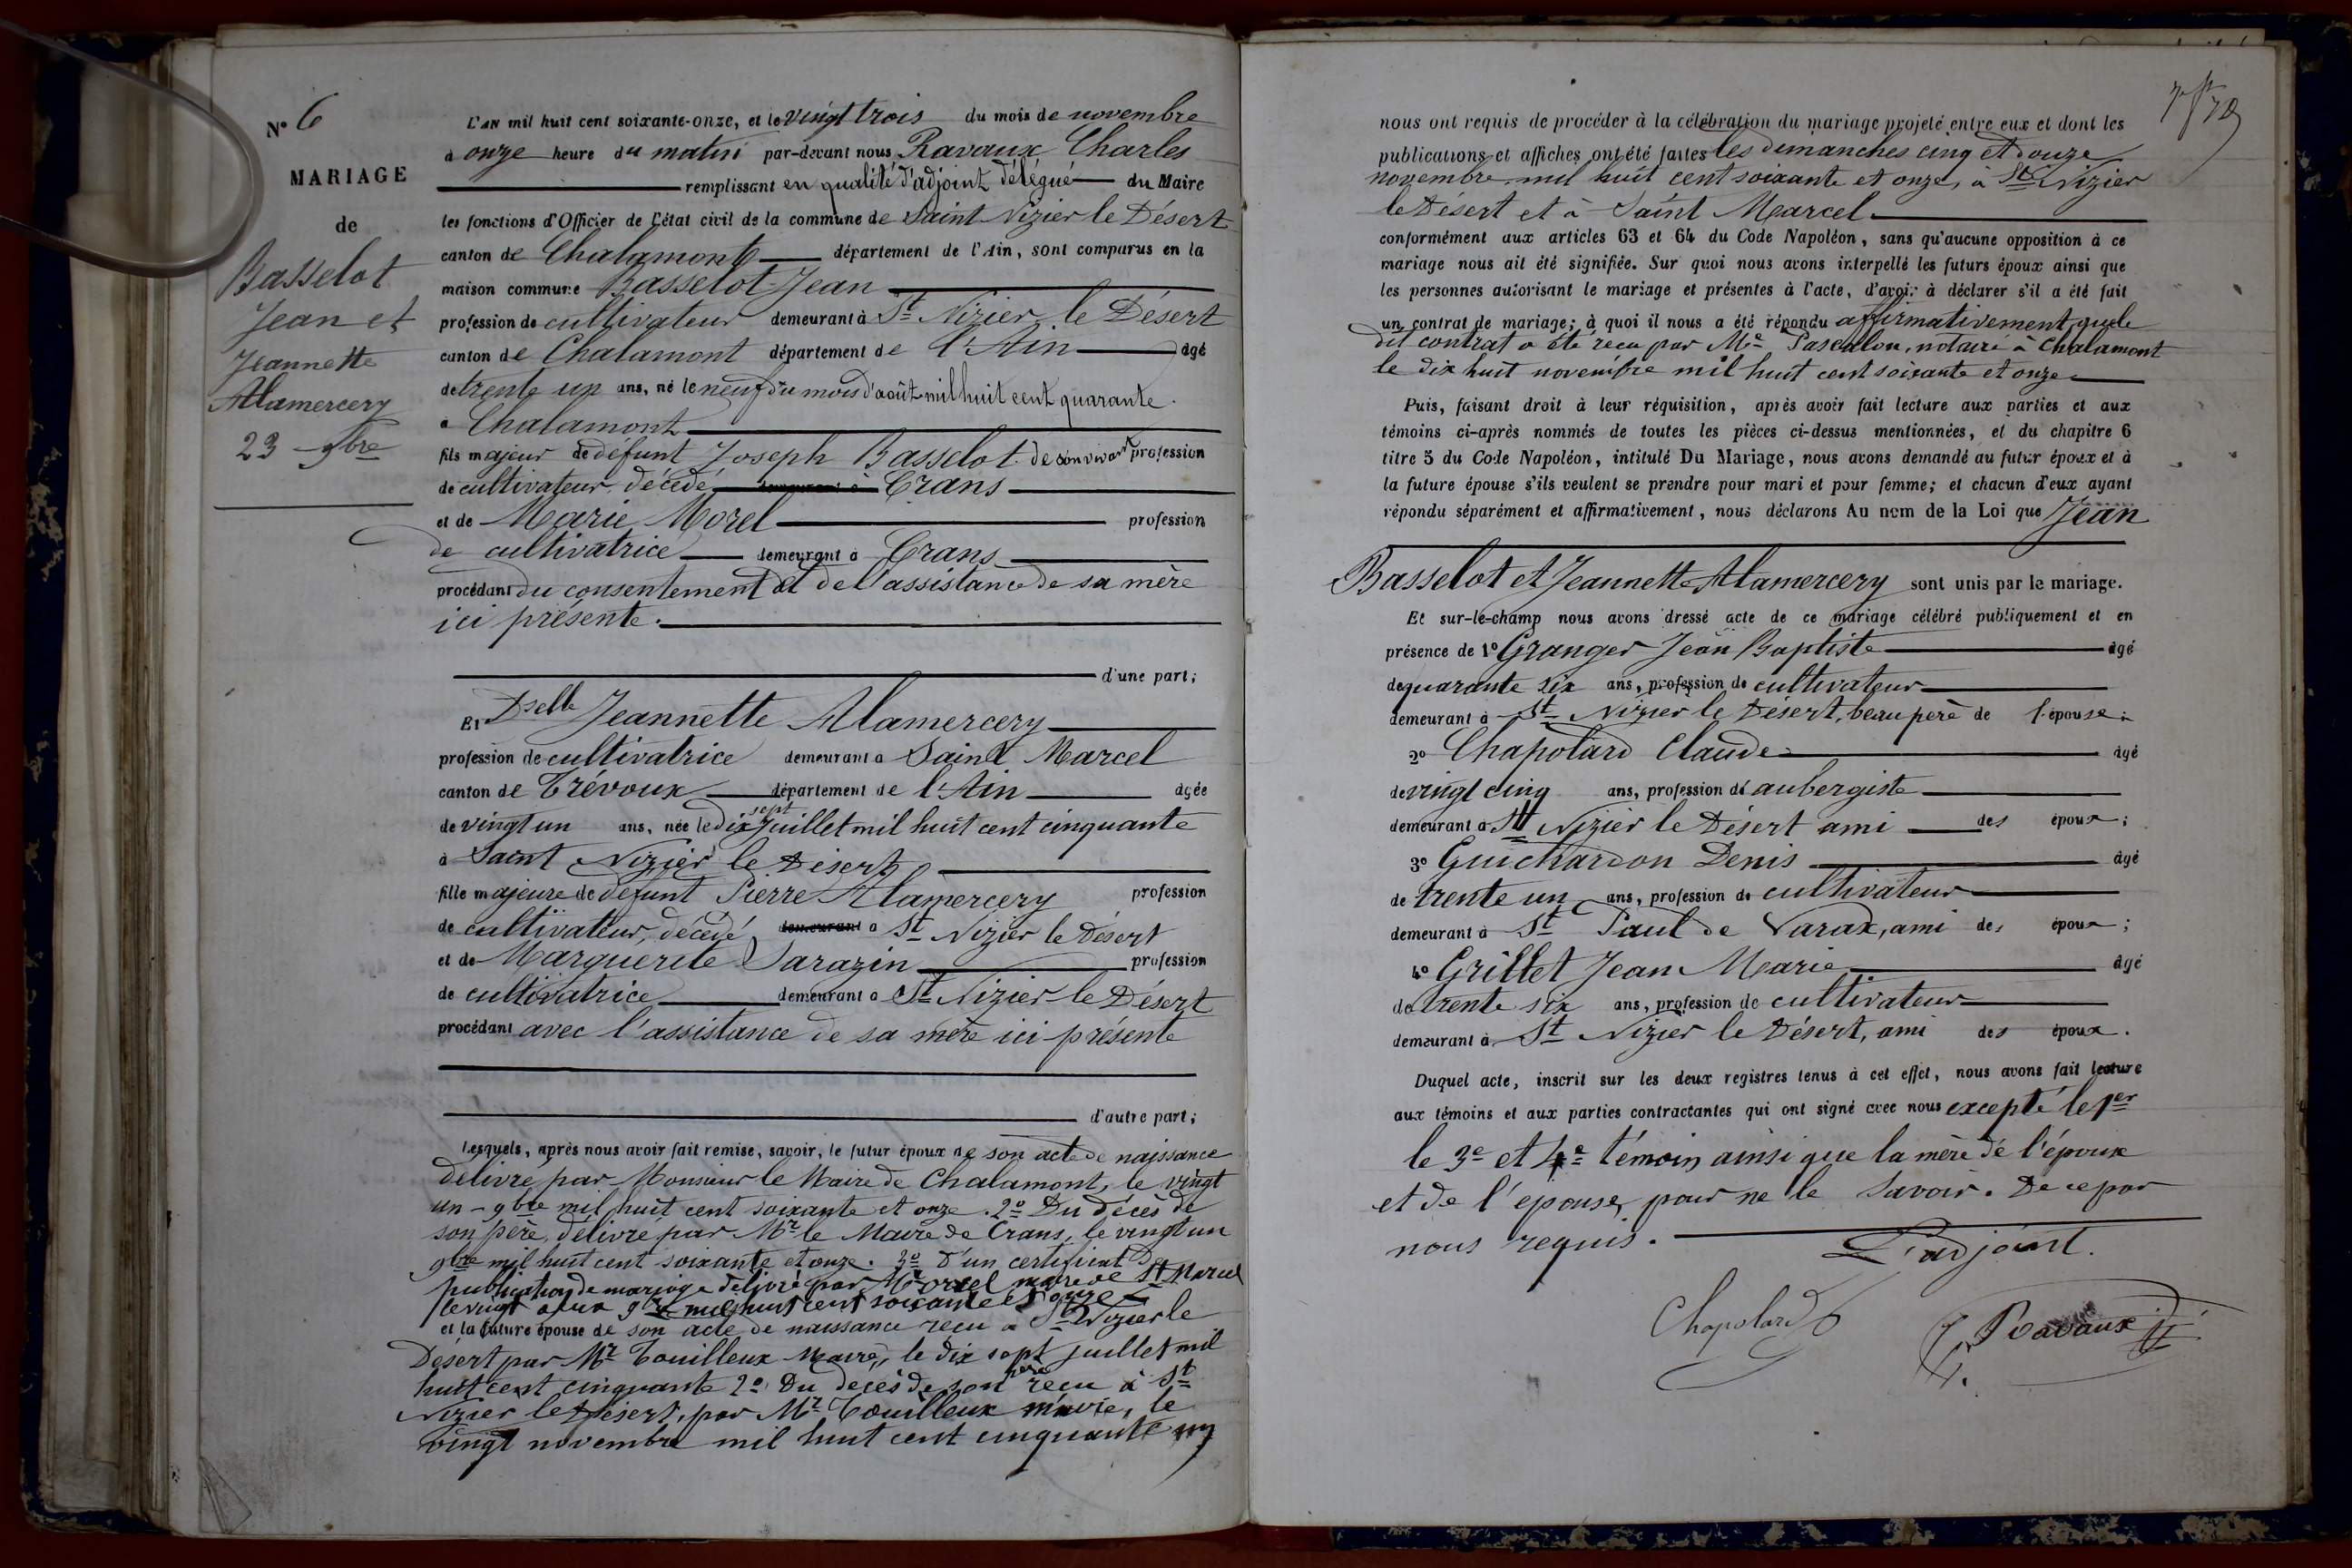 N° 6
MARIAGE
de
Basselot
Jean et
Jeannette
Alamercery
23 9bre
L'AN mil huit cent soixante-onze, et le vingt trois du mois de novembre
à onze heure du matin par-devant nous Ravaux Charles
remplissant en qualité d'adjoint délégué du Maire
les fonctions d'Officier de l'état civil de la commune de Saint Nizier le Désert
canton de Chalamont département de l'Ain, sont comparus en la
maison commune Basselot Jean
profession de cultivateur demeurant à St Nizier le Désert
canton de Chalamont département de l'Ain âgé
de trente un ans, né le neuf du mois d'août mil huit cent quarante.
à Chalamont
fils majeur de défunt Joseph Basselot de son vivant profession
de cultivateur, décédé demeurant à Crans
et de Marie Morel profession
de cultivatrice demeurant à Crans
procédant du consentement et de l'assistance de sa mère
ici présente.
d'une part;
Et Dselle Jeannette Alamercery
profession de cultivatrice demeurant à Saint Marcel
canton de Trévoux département de l'Ain âgée
de vingt un ans, née le dix sept Juillet mil huit cent cinquante
à Saint Nizier le Désert
fille majeure de défunt Pierre Alamercery profession
de cultivateur, décédé demeurant à St Nizier le Désert
et de Marguerite Sarazin profession
de cultivatrice demeurant à St Nizier le Désert
procédant avec l'assistance de sa mère ici présente
d'autre part;
Lesquels, après nous avoir fait remise, savoir, le futur époux de son acte de naissance
délivré par Monsieur le Maire de Chalamont, le vingt
un 9bre mil huit cent soixante et onze. 2° Du décès de
son père, délivré par Mr le Maire de Crans, le vingt un
9bre mil huit cent soixante et onze. 3° D'un certificat de
publication de mariage délivré par Mr Orsel maire de St Marcel
le vingt deux 9bre mil huit cent soixante et onze
et la future épouse de son acte de naissance reçu à St Nizier le
Désert par Mr Touilleux Maire, le dix sept juillet mil
huit cent cinquante 2° Du décès de son père reçu à St
Nizier le Désert, par Mr Touilleux maire, le
vingt novembre mil huit cent cinquante un
nous ont requis de procéder à la célébration du mariage projeté entre eux et dont les
publications et affiches ont été faites les dimanches cinq et douze
novembre mil huit cent soixante et onze, à St Nizier
le Désert et à Saint Marcel
conformément aux articles 63 et 64 du Code Napoléon, sans qu'aucune opposition à ce
mariage nous ait été signifiée. Sur quoi nous avons interpellé les futurs époux ainsi que
les personnes autorisant le mariage et présentes à l'acte, d'avoir à déclarer s'il a été fait
un contrat de mariage; à quoi il nous a été répondu affirmativement, que le
dit contrat a été reçu par Me Pascalon, notaire à Chalamont
le dix huit novembre mil huit cent soixante et onze
Puis, faisant droit à leur réquisition, après avoir fait lecture aux parties et aux
témoins ci-après nommés de toutes les pièces ci-dessus mentionnées, et du chapitre 6
titre 5 du Code Napoléon, intitulé Du Mariage, nous avons demandé au futur époux et à
la future épouse s'ils veulent se prendre pour mari et pour femme; et chacun d'eux ayant
répondu séparément et affirmativement, nous déclarons Au nom de la Loi que Jean
Basselot et Jeannette Alamercery sont unis par le mariage.
Et sur-le-champ nous avons dressé acte de ce mariage célébré publiquement et en
présence de 1° Granger Jean Baptiste âgé
de quarante six ans, profession de cultivateur
demeurant à St Nizier le Désert, beau père de l'épouse;
2° Chapolard Claude âgé
de vingt cinq ans, profession de aubergiste
demeurant à St Nizier le Désert ami des époux;
3° Guichardon Denis âgé
de trente un ans, profession de cultivateur
demeurant à St Paul de Varax, ami des époux;
4° Grillet Jean Marie âgé
de trente six ans, profession de cultivateur
demeurant à St Nizier le Désert, ami des époux.
Duquel acte, inscrit sur les deux registres tenus à cet effet, nous avons fait lecture
aux témoins et aux parties contractantes qui ont signé avec nous excepté le 1er
le 3e et 4e témoin ainsi que la mère de l'époux
et de l'épouse, pour ne le savoir. De ce par
nous requis.
L'adjoint.
Chapolard
Ravaux